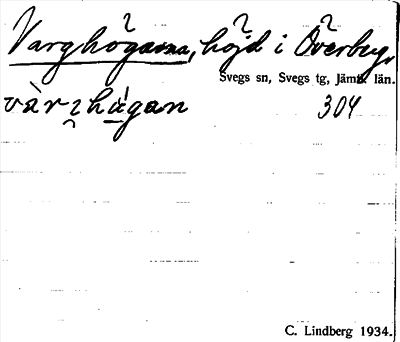 Varghögarna, höjd i Överberg,
Svegs sn, Svegs tg, Jämtl. län.
304
C. Lindberg 1934.